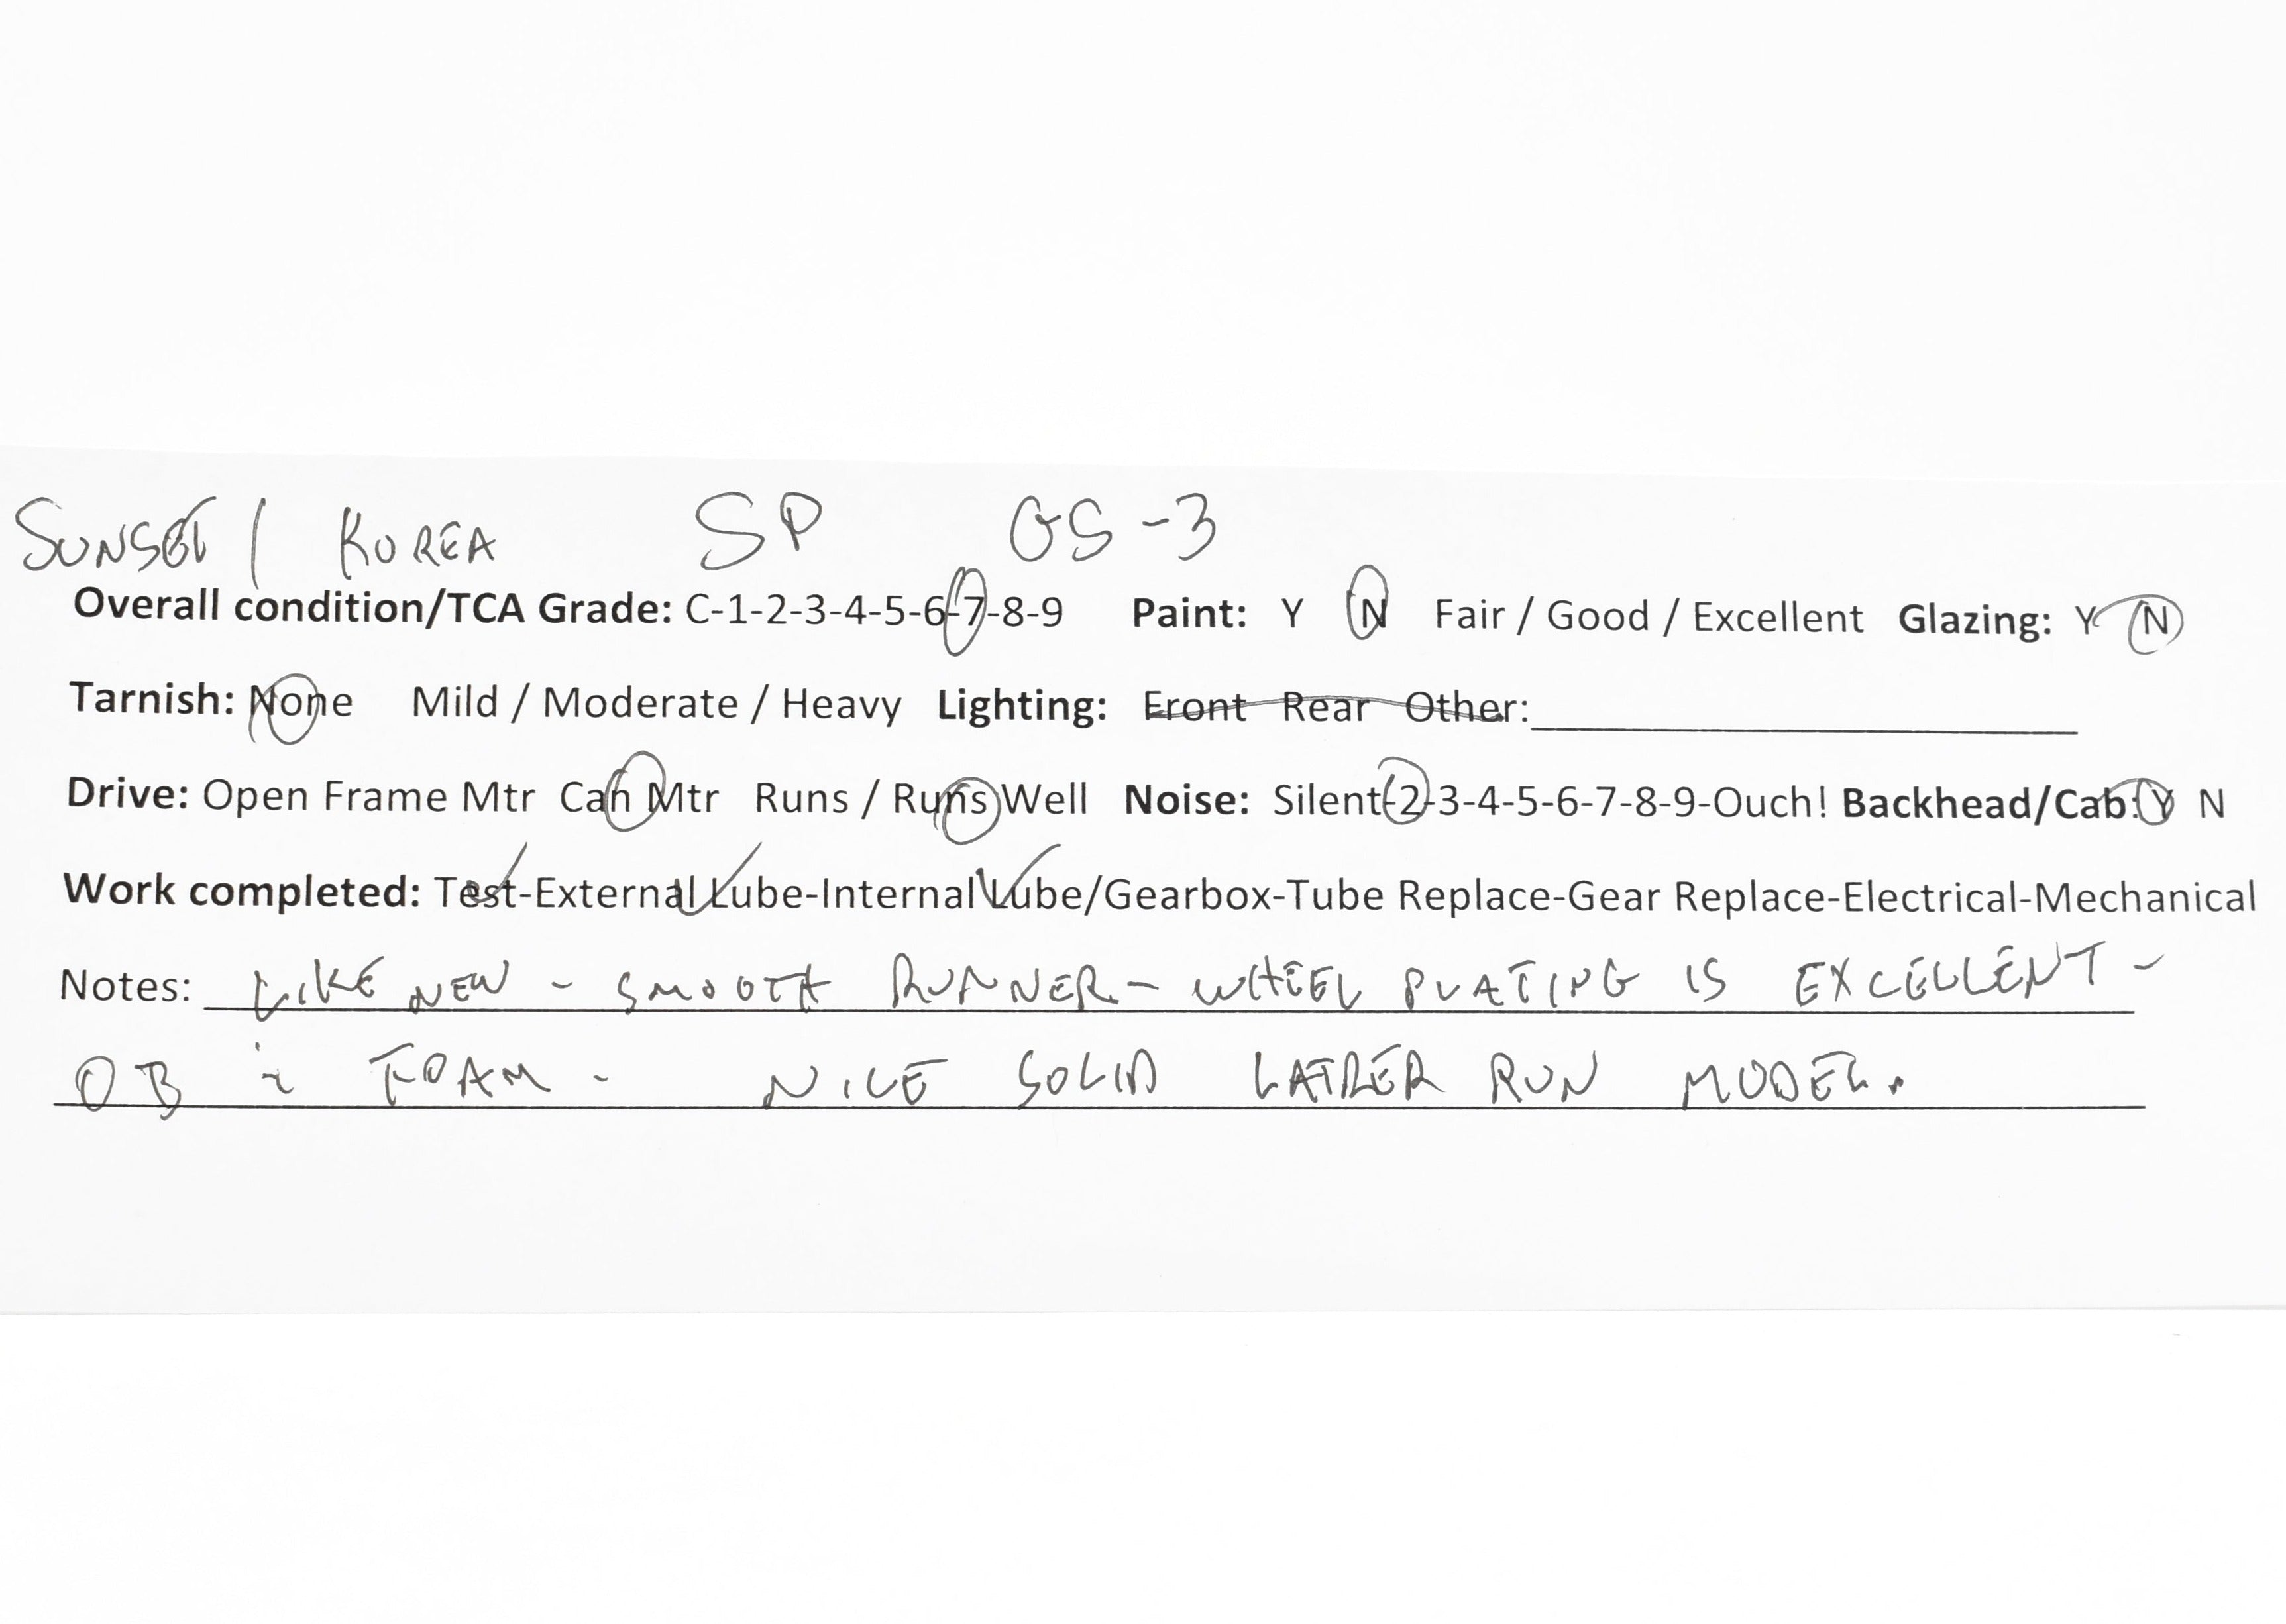 SUNSET / KOREA SP GS-3
Overall condition/TCA Grade: C-1-2-3-4-5-6-7-8-9 Paint: Y N Fair / Good / Excellent Glazing: Y N
Tarnish: None Mild / Moderate / Heavy Lighting: Front Rear Other:
Drive: Open Frame Mtr Can Mtr Runs / Runs Well Noise: Silent-2-3-4-5-6-7-8-9-Ouch! Backhead/Cab: Y N
Work completed: Test-External Lube-Internal Lube/Gearbox-Tube Replace-Gear Replace-Electrical-Mechanical
Notes: LIKE NEW - SMOOTH RUNNER - WHEEL PLATING IS EXCELLENT -
OB & FOAM - NICE SOLID LATER RUN MODEL.